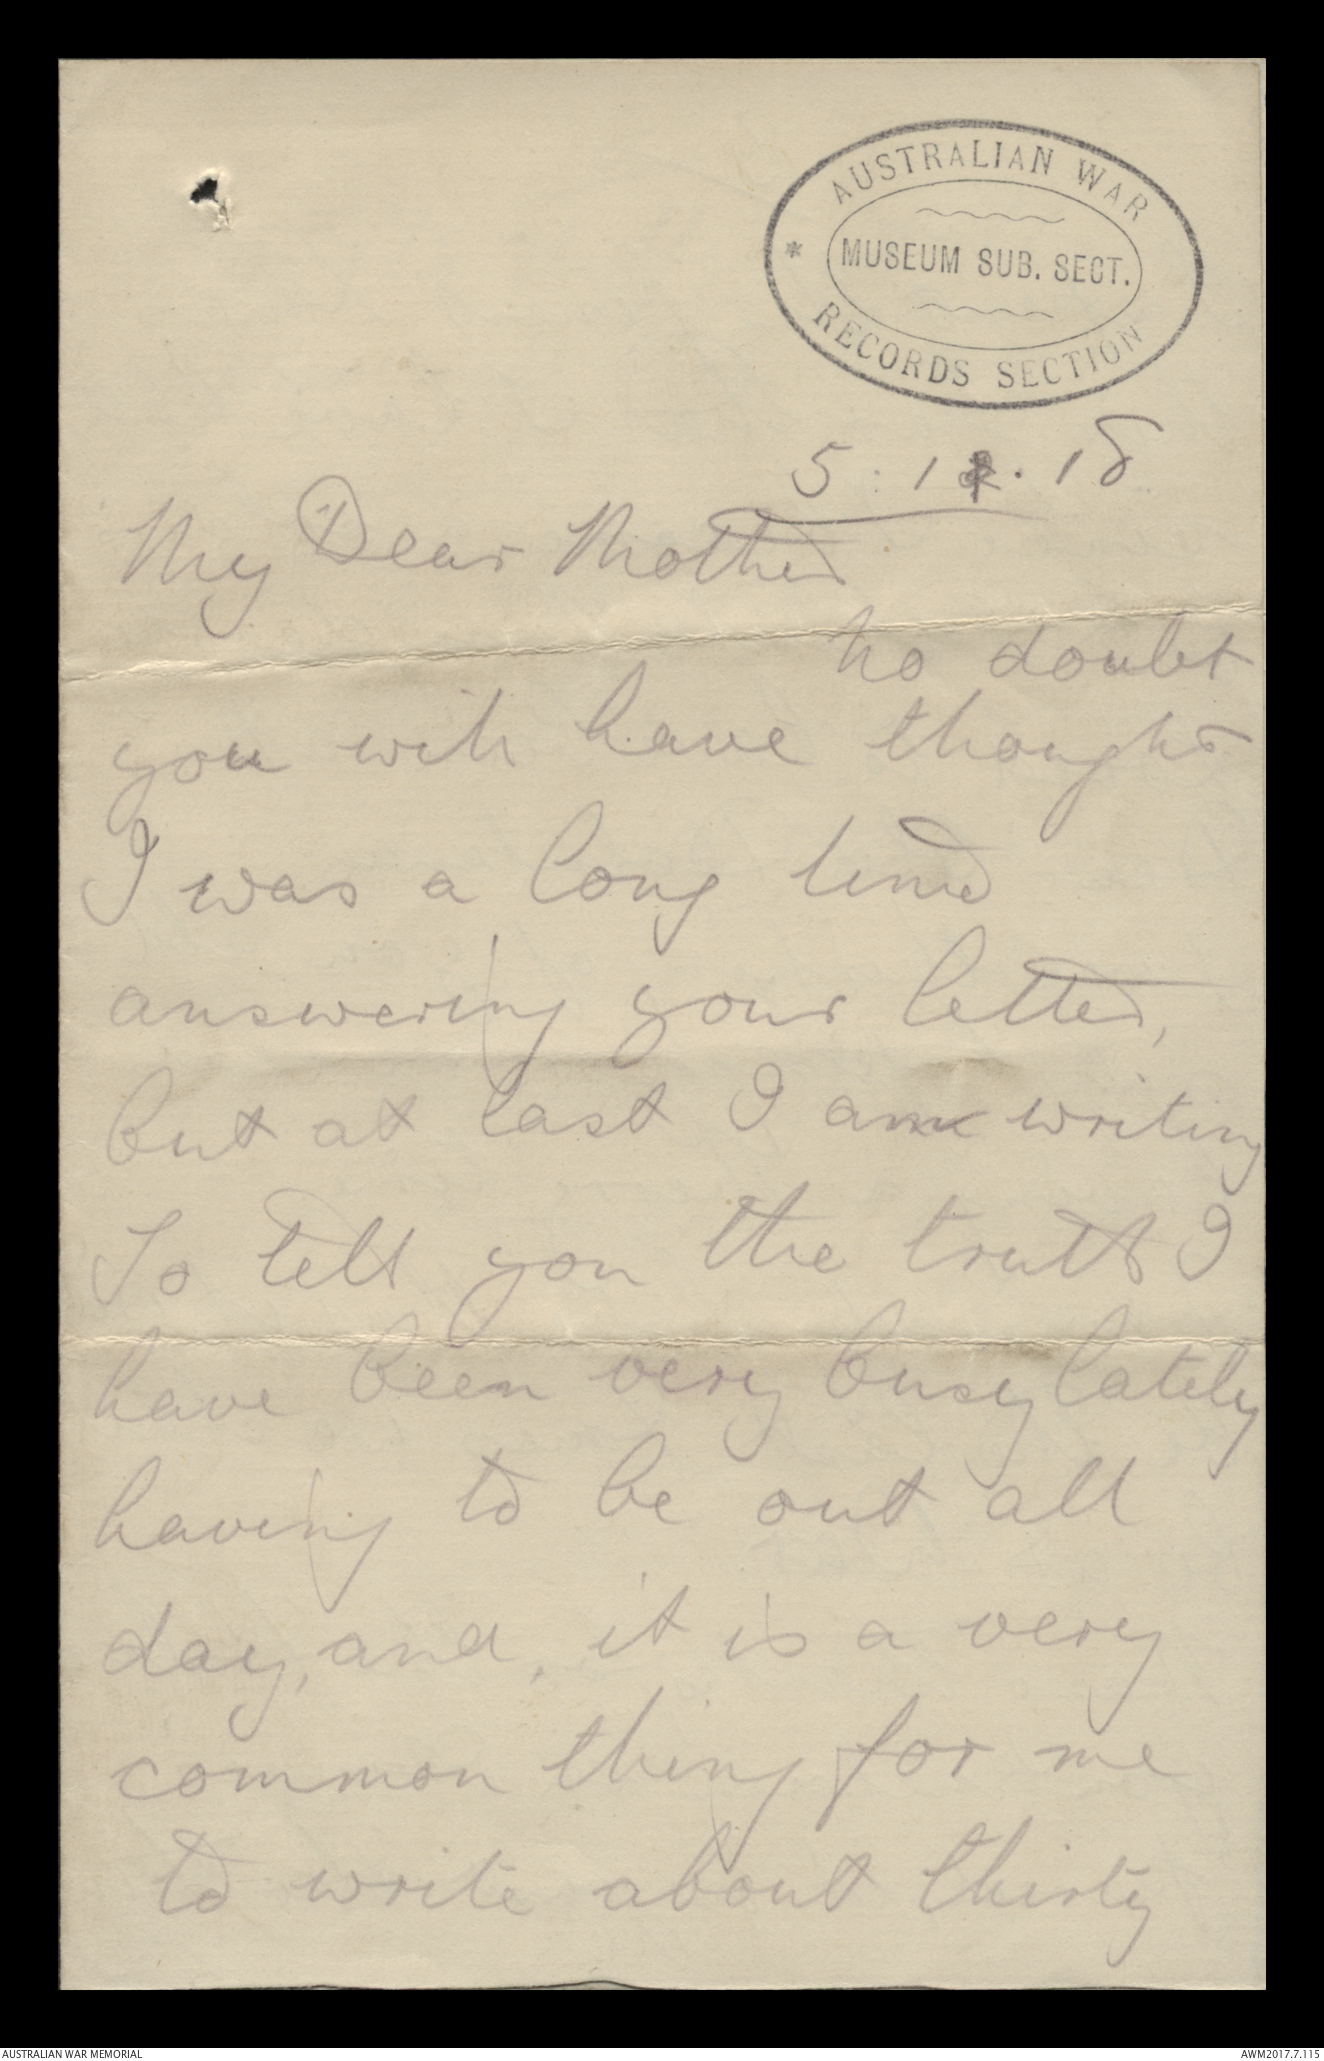 AUSTRALIAN WAR
* MUSEUM SUB. SECT.
RECORDS SECTION
5.12.18
My Dear Mother
No doubt
you will have thought
I was a long time
answering your letter,
but at last I am writing
To tell you the truth I
have been very busy lately
having to be out all
day, and, it is a very
common thing for me
to write about thirty
AUSTRALIAN WAR MEMORIAL
AWM2017.7.115